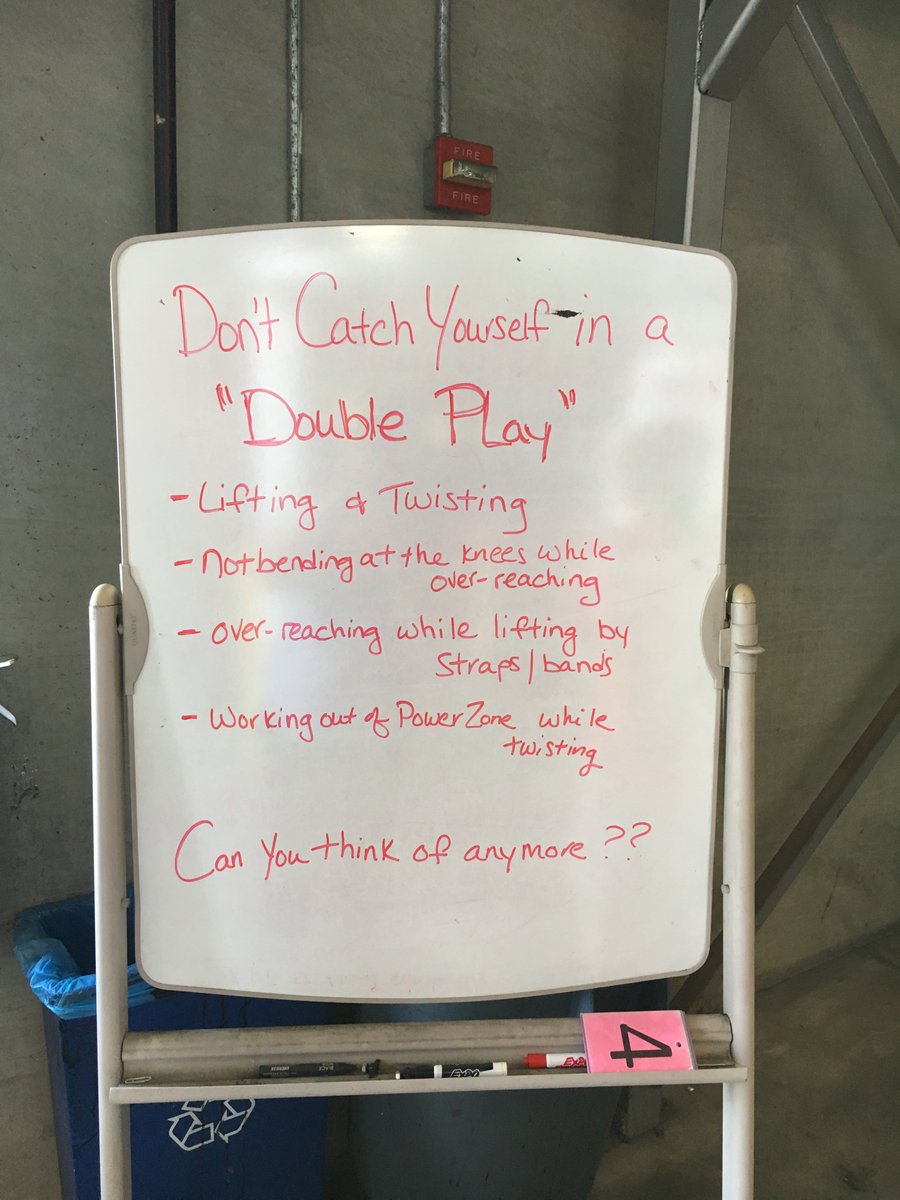 FIRE
FIRE
Don't Catch Yourself in a
"Double Play"
- Lifting & Twisting
- Not bending at the knees while
over-reaching
- over-reaching while lifting by
straps/bands
- Working out of PowerZone while
twisting
Can you think of anymore ??
QUARTET
BLACK
EXPO
EXPO
4